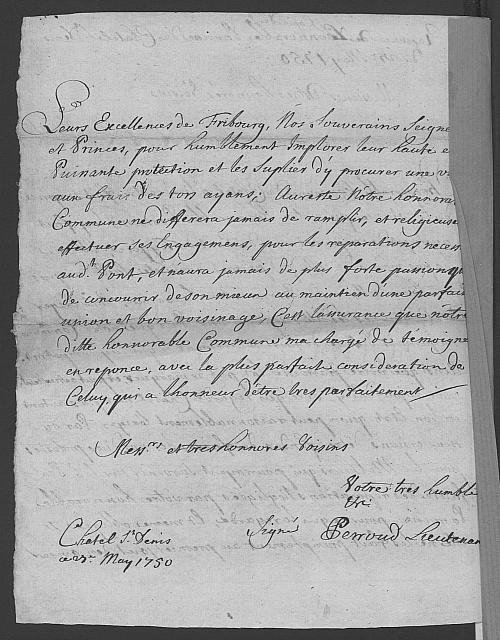 Leurs Excellences de Fribourg, Nos Souverains Seigne
et Princes, pour humblement Implorer leur haute e
Puissante protection et les Suplier d'y procurer une v
aux frais des tors ayans; Aureste Notre honnora
Commune ne differera jamais de ramplir, et religieuse
effectuer ses Engagemens, pour les reparations necess
aud.t Pont, et n'aura jamais de plus forte passion q
de concourrir de son mieux au maintien d'une parfai
union et bon voisinage, C'est l'assurance que notre
ditte honnorable Commune m'a chargé de témoigne
en reponce, avec la plus parfait consideration de
Celuy, qui a l'honneur d'être tres parfaitement
Mess.rs et tres honnores Voisins
Votre tres humble
&c.
Signé Perroud Lieutenan
Chatel S.t Denis
May 1750